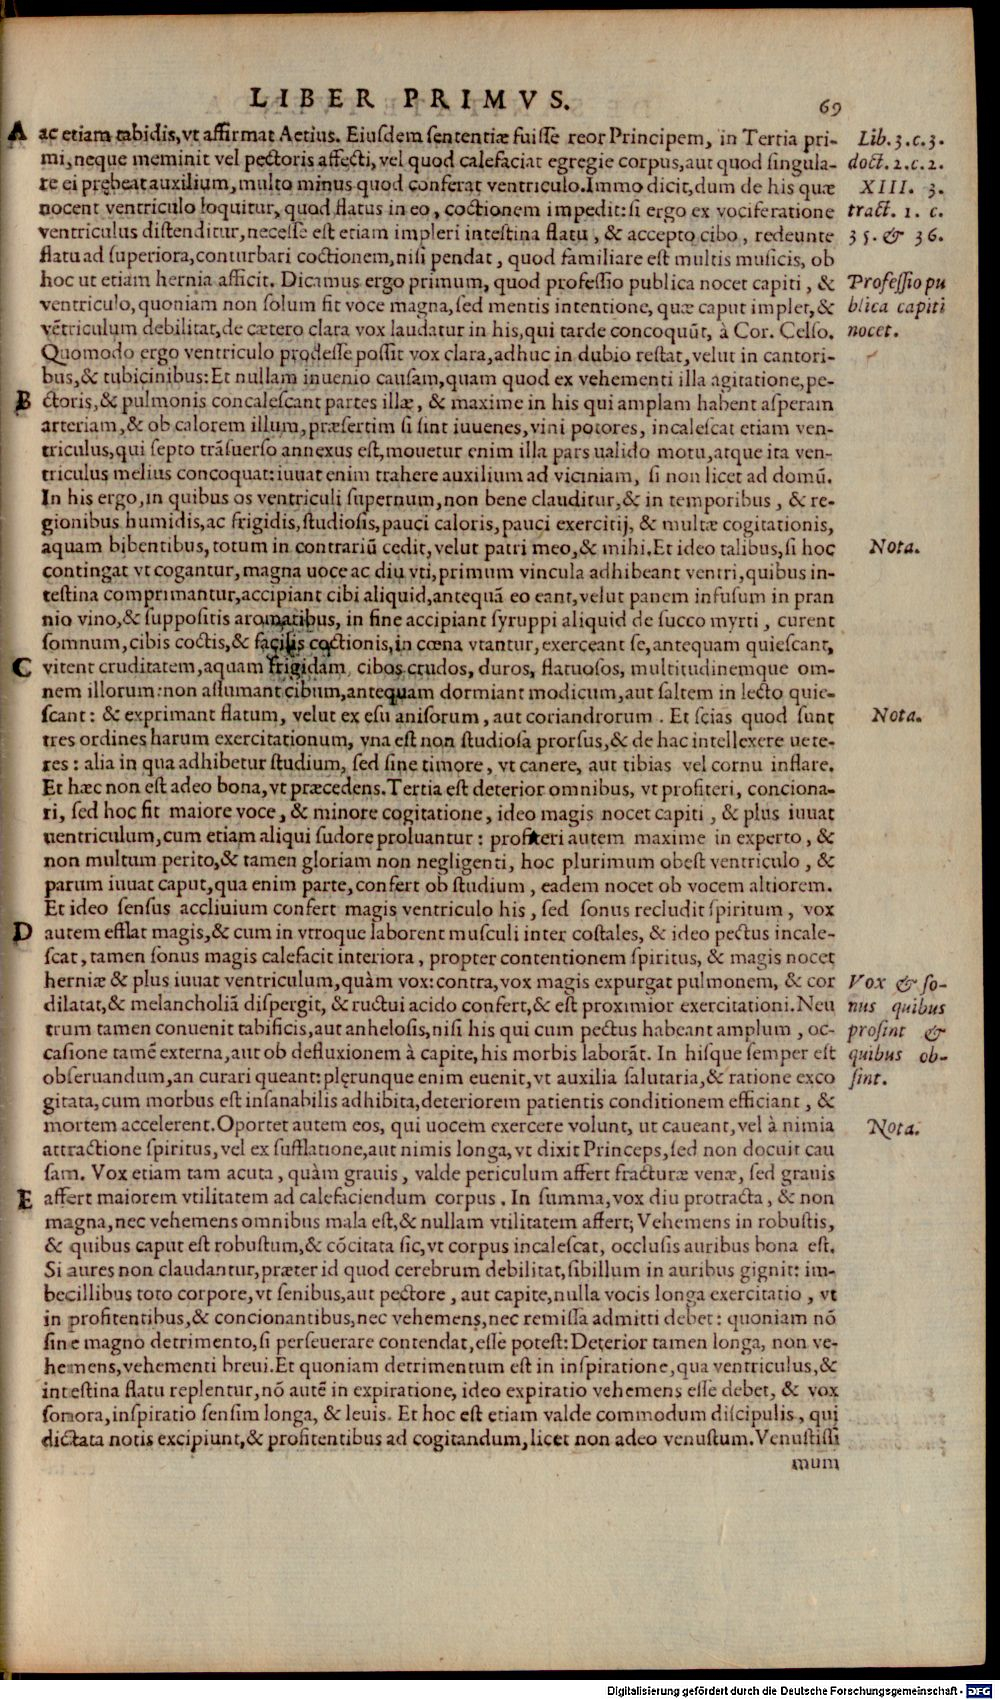 LIBER PRIMVS.
69
A ac etiam tabidis, vt affirmat Aetius. Eiusdem sententiæ fuisse reor Principem, in Tertia pri- Lib. 3. c. 3.
mi, neque meminit vel pectoris affecti, vel quod calefaciat egregie corpus, aut quod singula- doct. 2. c. 2.
re ei prębeat auxilium, multo minus quod conferat ventriculo. Immo dicit, dum de his quæ XIII. 3.
nocent ventriculo loquitur, quod flatus in eo, coctionem impedit: si ergo ex vociferatione tract. 1. c.
ventriculus distenditur, necesse est etiam impleri intestina flatu, & accepto cibo, redeunte 35. & 36.
flatu ad superiora, conturbari coctionem, nisi pendat, quod familiare est multis musicis, ob
hoc ut etiam hernia afficit. Dicamus ergo primum, quod professio publica nocet capiti, & Professio pu
ventriculo, quoniam non solum fit voce magna, sed mentis intentione, quæ caput implet, & blica capiti
vẽtriculum debilitat, de cætero clara vox laudatur in his, qui tarde concoquũt, à Cor. Celso. nocet.
Quomodo ergo ventriculo prodesse possit vox clara, adhuc in dubio restat, velut in cantori-
bus, & tubicinibus: Et nullam inuenio causam, quam quod ex vehementi illa agitatione, pe-
B ctoris, & pulmonis concalescant partes illæ, & maxime in his qui amplam habent asperam
arteriam, & ob calorem illum, præsertim si sint iuuenes, vini potores, incalescat etiam ven-
triculus, qui septo trãsuerso annexus est, mouetur enim illa pars ualido motu, atque ita ven-
triculus melius concoquat: iuuat enim trahere auxilium ad viciniam, si non licet ad domũ.
In his ergo, in quibus os ventriculi supernum, non bene clauditur, & in temporibus, & re-
gionibus humidis, ac frigidis, studiosis, pauci caloris, pauci exercitij, & multæ cogitationis,
aquam bibentibus, totum in contrariũ cedit, velut patri meo, & mihi. Et ideo talibus, si hoc Nota.
contingat vt cogantur, magna uoce ac diu vti, primum vincula adhibeant ventri, quibus in-
testina comprimantur, accipiant cibi aliquid, antequã eo eant, velut panem infusum in pran
nio vino, & suppositis aromatibus, in fine accipiant syruppi aliquid de succo myrti, curent
somnum, cibis coctis, & facilis coctionis, in cœna vtantur, exerceant se, antequam quiescant,
C vitent cruditatem, aquam frigidam, cibos crudos, duros, flatuosos, multitudinemque om-
nem illorum: non assumant cibum, antequam dormiant modicum, aut saltem in lecto quie-
scant: & exprimant flatum, velut ex esu anisorum, aut coriandrorum. Et scias quod sunt Nota.
tres ordines harum exercitationum, vna est non studiosa prorsus, & de hac intellexere uete-
res: alia in qua adhibetur studium, sed sine timore, vt canere, aut tibias vel cornu inflare.
Et hæc non est adeo bona, vt præcedens. Tertia est deterior omnibus, vt profiteri, conciona-
ri, sed hoc fit maiore voce, & minore cogitatione, ideo magis nocet capiti, & plus iuuat
uentriculum, cum etiam aliqui sudore proluantur: profiteri autem maxime in experto, &
non multum perito, & tamen gloriam non negligenti, hoc plurimum obest ventriculo, &
parum iuuat caput, qua enim parte, confert ob studium, eadem nocet ob vocem altiorem.
Et ideo sensus accliuium confert magis ventriculo his, sed sonus recludit spiritum, vox
D autem efflat magis, & cum in vtroque laborent musculi inter costales, & ideo pectus incale-
scat, tamen sonus magis calefacit interiora, propter contentionem spiritus, & magis nocet
herniæ & plus iuuat ventriculum, quàm vox: contra, vox magis expurgat pulmonem, & cor Vox & so-
dilatat, & melancholiã dispergit, & ructui acido confert, & est proximior exercitationi. Neu nus quibus
trum tamen conuenit tabificis, aut anhelosis, nisi his qui cum pectus habeant amplum, oc- prosint &
casione tamẽ externa, aut ob defluxionem à capite, his morbis laborãt. In hisque semper est quibus ob-
obseruandum, an curari queant: plęrunque enim euenit, vt auxilia salutaria, & ratione exco sint.
gitata, cum morbus est insanabilis adhibita, deteriorem patientis conditionem efficiant, &
mortem accelerent. Oportet autem eos, qui uocem exercere volunt, ut caueant, vel à nimia Nota.
attractione spiritus, vel ex sufflatione, aut nimis longa, vt dixit Princeps, sed non docuit cau
sam. Vox etiam tam acuta, quàm grauis, valde periculum affert fracturæ venæ, sed grauis
E affert maiorem vtilitatem ad calefaciendum corpus. In summa, vox diu protracta, & non
magna, nec vehemens omnibus mala est, & nullam vtilitatem affert; Vehemens in robustis,
& quibus caput est robustum, & cõcitata sic, vt corpus incalescat, occlusis auribus bona est.
Si aures non claudantur, præter id quod cerebrum debilitat, sibillum in auribus gignit: im-
becillibus toto corpore, vt senibus, aut pectore, aut capite, nulla vocis longa exercitatio, vt
in profitentibus, & concionantibus, nec vehemens, nec remissa admitti debet: quoniam nõ
sine magno detrimento, si perseuerare contendat, esse potest: Deterior tamen longa, non ve-
hemens, vehementi breui. Et quoniam detrimentum est in inspiratione, qua ventriculus, &
intestina flatu replentur, nõ autẽ in expiratione, ideo expiratio vehemens esse debet, & vox
sonora, inspiratio sensim longa, & leuis. Et hoc est etiam valde commodum discipulis, qui
dictata notis excipiunt, & profitentibus ad cogitandum, licet non adeo venustum. Venustissi
mum
Digitalisierung gefördert durch die Deutsche Forschungsgemeinschaft - DFG